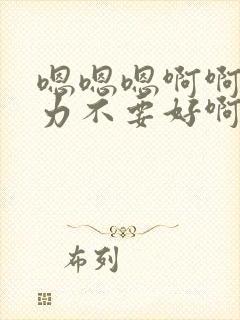 嗯嗯嗯啊啊
力不要好啊
布列